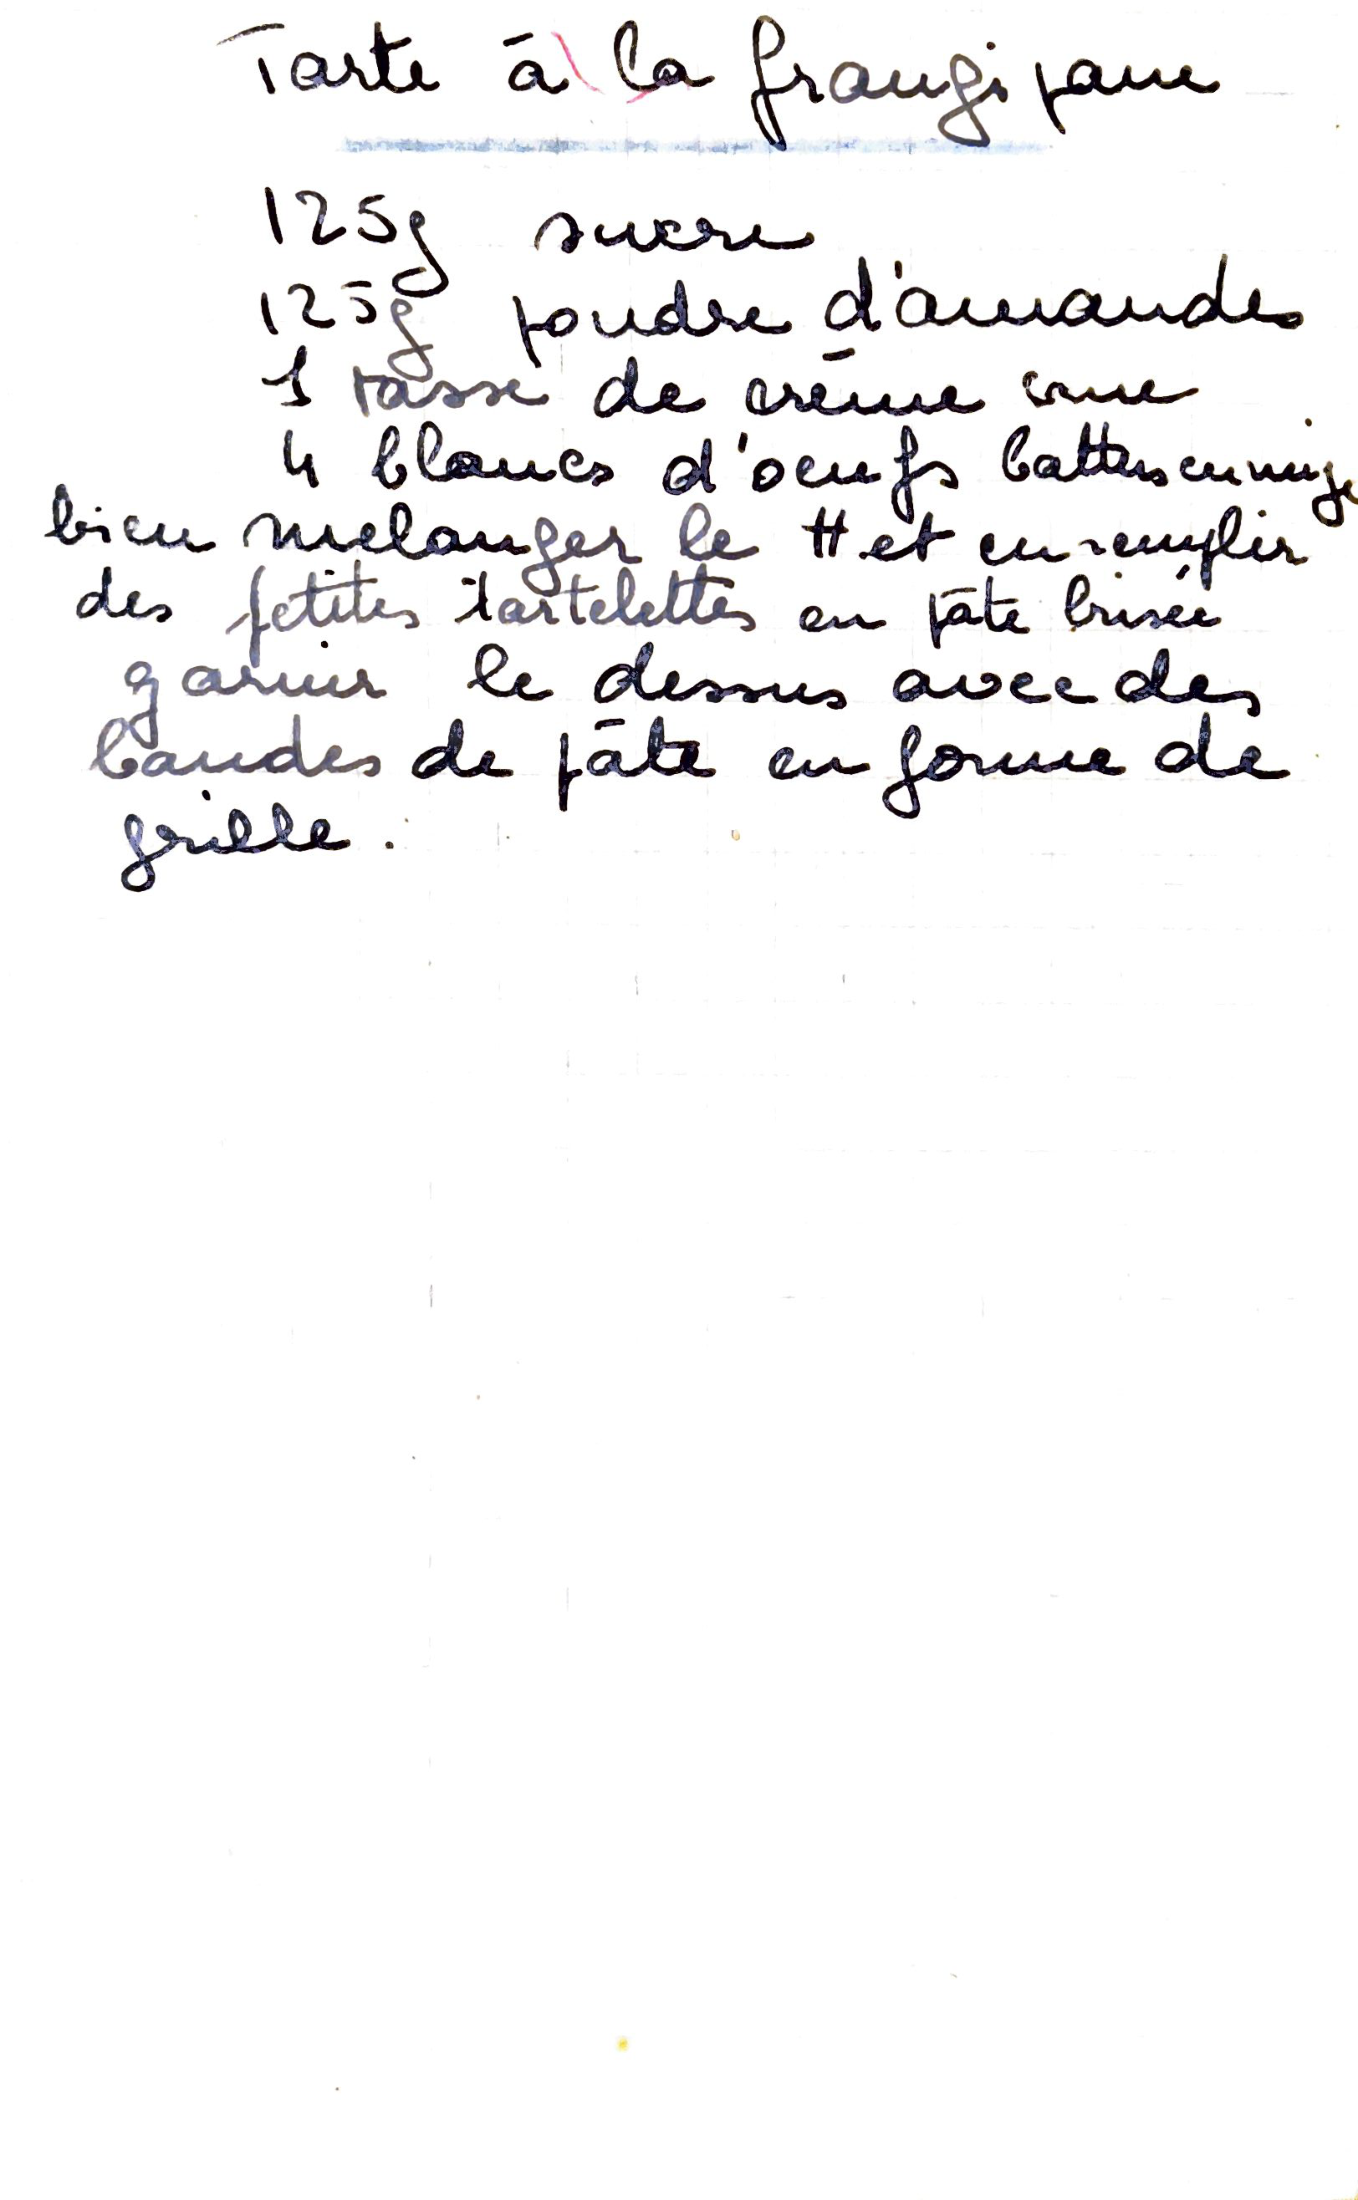 Tarte à la frangipane
125g sucre
125g poudre d'amandes
1 tasse de crème crue
4 blancs d'oeufs battus en neige
bien melanger le tt et en remplir
des petites tartelettes en pâte brisée
garnir le dessus avec des
bandes de pâte en forme de
grille.